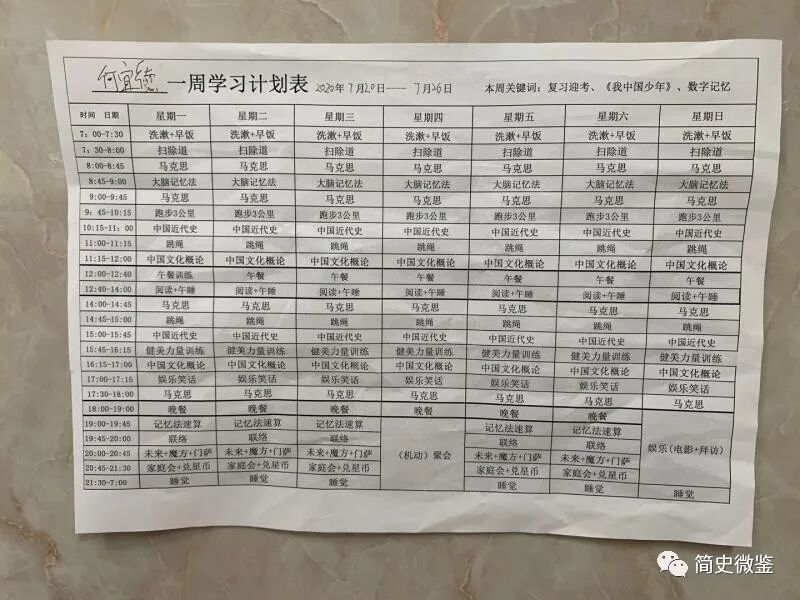 何宜德 一周学习计划表 2020年7月20日——7月26日 本周关键词：复习迎考、《我中国少年》、数字记忆
时间 日期 星期一 星期二 星期三 星期四 星期五 星期六 星期日
7：00-7:30 洗漱+早饭 洗漱+早饭 洗漱+早饭 洗漱+早饭 洗漱+早饭 洗漱+早饭
7；30-8:00 扫除道 扫除道 扫除道 扫除道 扫除道 扫除道 扫除道
8:00-8:45 马克思 马克思 马克思 马克思 马克思 马克思 马克思
8:45-9:00 大脑记忆法 大脑记忆法 大脑记忆法 大脑记忆法 大脑记忆法 大脑记忆法 大脑记忆法
9:00-9:45 马克思 马克思 马克思 马克思 马克思 马克思 马克思
9：45-10:15 跑步3公里 跑步3公里 跑步3公里 跑步3公里 跑步3公里 跑步3公里 跑步3公里
10:15-11：00 中国近代史 中国近代史 中国近代史 中国近代史 中国近代史 中国近代史 中国近代史
11:00-11:15 跳绳 跳绳 跳绳 跳绳 跳绳 跳绳 跳绳
11:15-12:00 中国文化概论 中国文化概论 中国文化概论 中国文化概论 中国文化概论 中国文化概论 中国文化概论
12:00-12:40 午餐训练 午餐 午餐 午餐 午餐 午餐 午餐
12:40-14:00 阅读+午睡 阅读+午睡 阅读+午睡 阅读+午睡 阅读+午睡 阅读+午睡 阅读+午睡
14:00-14:45 马克思 马克思 马克思 马克思 马克思 马克思 马克思
14:45-15:00 跳绳 跳绳 跳绳 跳绳 跳绳 跳绳 跳绳
15:00-15:45 中国近代史 中国近代史 中国近代史 中国近代史 中国近代史 中国近代史 中国近代史
15:45-16:15 健美力量训练 健美力量训练 健美力量训练 健美力量训练 健美力量训练 健美力量训练 健美力量训练
16:15-17:00 中国文化概论 中国文化概论 中国文化概论 中国文化概论 中国文化概论 中国文化概论 中国文化概论
17:00-17:15 娱乐笑话 娱乐笑话 娱乐笑话 娱乐笑话 娱乐笑话 娱乐笑话 娱乐笑话
17:30-18:00 马克思 马克思 马克思 马克思 马克思 马克思 马克思
18:00-19:00 晚餐 晚餐 晚餐 晚餐 晚餐 晚餐
19:00-19:45 记忆法速算 记忆法速算 记忆法速算 记忆法速算 记忆法速算
19:45-20:00 联络 联络 联络 联络 联络 娱乐(电影+拜访)
20:00-20:45 未来+魔方+门萨 未来+魔方+门萨 未来+魔方+门萨 （机动）聚会 未来+魔方+门萨 未来+魔方+门萨
20:45-21:30 家庭会+兑星币 家庭会+兑星币 家庭会+兑星币 家庭会+兑星币 家庭会+兑星币
21:30-7:00 睡觉 睡觉 睡觉 睡觉 睡觉 睡觉
简史微鉴